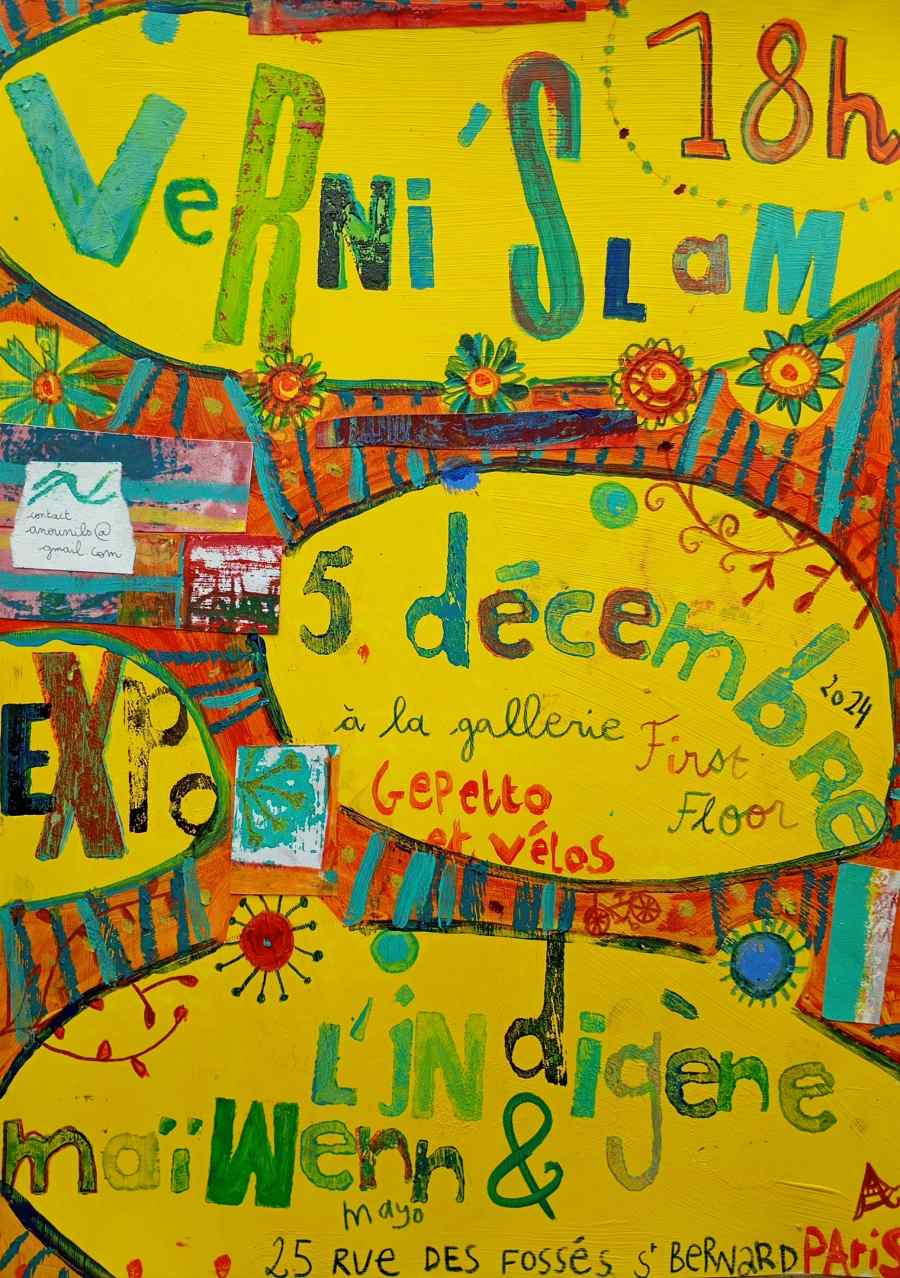 18h
VeRNi'SLaM
contact
anounils@
gmail com
5 décembRe
2024
à la gallerie First
Floor
Gepetto
et vélos
EXPo
L'iNdigène
maïWenn &
mayo
25 RUE DES FOSSÉS St BERNARD PARiS